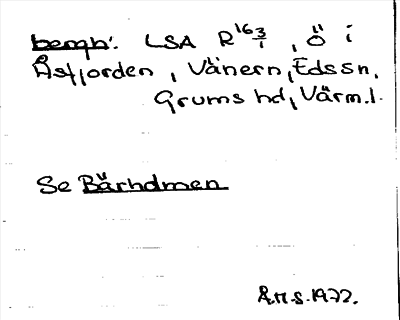 bergh'. LSA R 16 3/1, ö i
Åsfjorden, Vänern, Edssn,
Grums hd, Värml.
Se Bärholmen
Å.M.S. 1972.